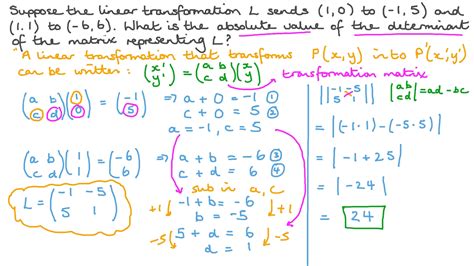 Suppose the linear transformation L sends (1,0) to (-1,5) and
(1,1) to (-6,6). What is the absolute value of the determinant
of the matrix representing L?
A linear transformation that transforms P(x,y) into P'(x',y')
can be written: (x' y') = (a b c d)(x y)
transformation matrix
(a b c d)(1 0) = (-1 5) ⇒ a + 0 = -1 ①
c + 0 = 5 ②
a = -1, c = 5
(a b c d)(1 1) = (-6 6) ⇒ a + b = -6 ③
c + d = 6 ④
sub in a, c
+1 -1 + b = -6 +1
b = -5
-5 5 + d = 6 -5
d = 1
L = (-1 -5 5 1)
||-1 -5 5 1|| |a b c d| = ad - bc
= |(-1·1) - (-5·5)|
= |-1 + 25|
= |-24|
= 24